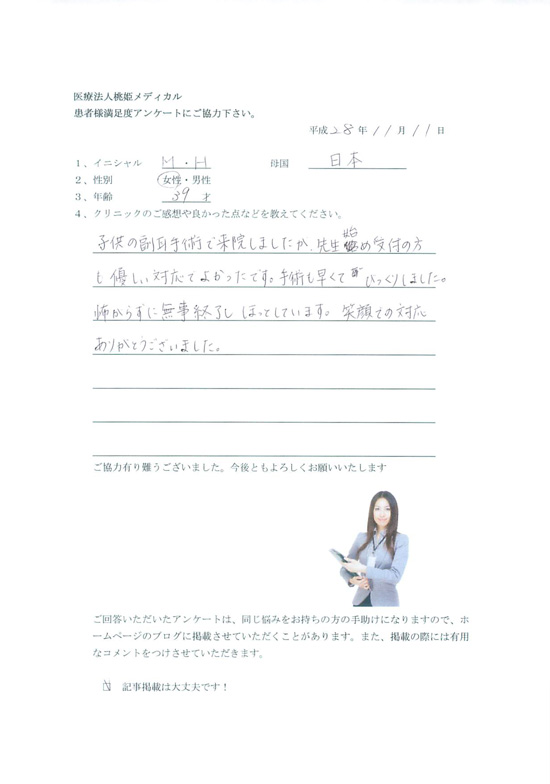 医療法人桃姫メディカル
患者様満足度アンケートにご協力下さい。
平成28年11月11日
1、イニシャル M・H 母国 日本
2、性別 女性・男性
3、年齢 39才
4、クリニックのご感想や良かった点などを教えてください。
子供の副耳手術で来院しましたが、先生始め受付の方
も優しい対応でよかったです。手術も早くてびっくりしました。
怖からずに無事終了しほっとしています。笑顔での対応
ありがとうございました。
ご協力有り難うございました。今後ともよろしくお願いいたします
ご回答いただいたアンケートは、同じ悩みをお持ちの方の手助けになりますので、ホ
ームページのブログに掲載させていただくことがあります。また、掲載の際には有用
なコメントをつけさせていただきます。
☑ 記事掲載は大丈夫です！